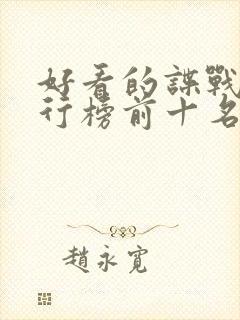 好看的諜戰
行榜前十名
趙永寬